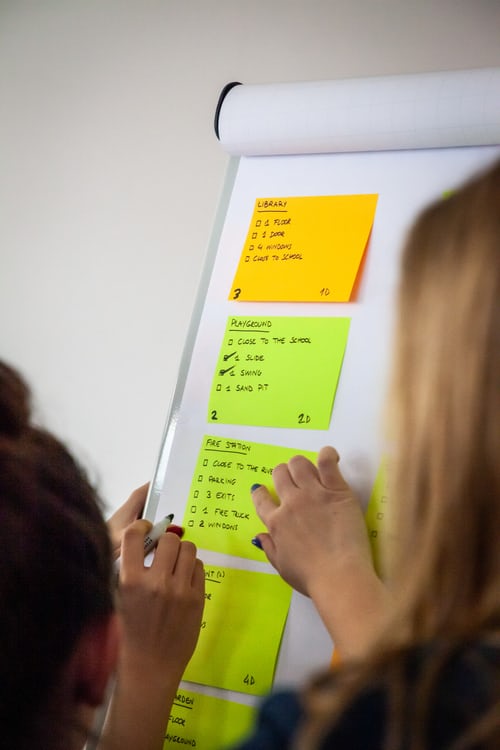 LIBRARY
1 FLOOR
1 DOOR
4 WINDOWS
CLOSE TO SCHOOL
3 1D
PLAYGROUND
CLOSE TO THE SCHOOL
1 SLIDE
1 SWING
1 SAND PIT
2 2D
FIRE STATION
CLOSE TO THE RIVE
PARKING
3 EXITS
1 FIRE TRUCK
2 WINDOWS
NT (1)
OR
S
4D
ARDEN
FLOOR
AYGROUND